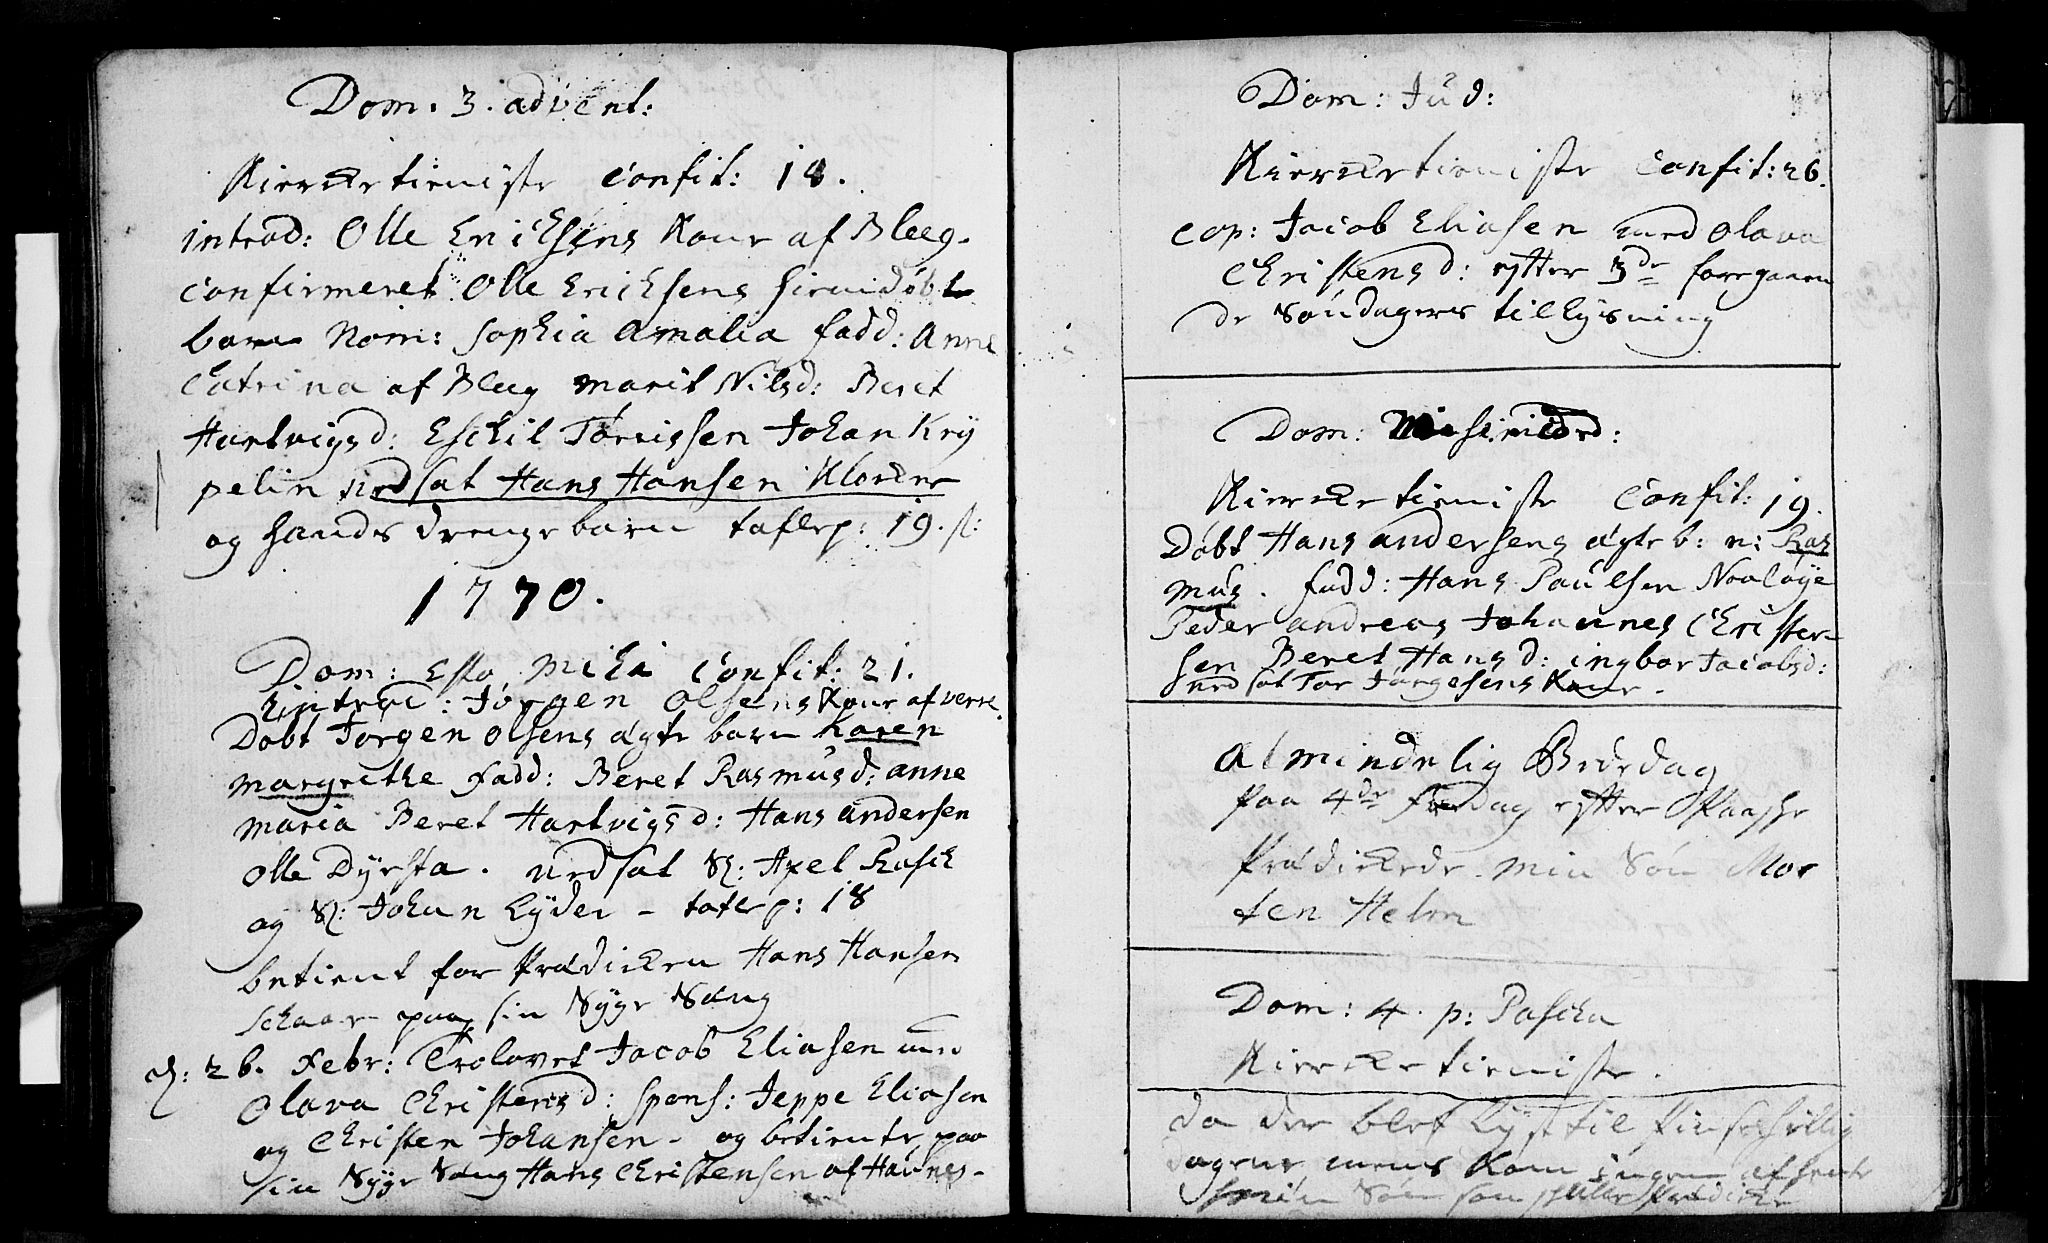 Dom. 3. advent:
Kierketieniste Confit: 18.
introd: Olle Erichsens Kone af Bleeg.
Confirmeret Olle Erichsens hiemdøbt
barn Nom: Sophia Amalia fadd: Anne
Catrina af Bleeg Marit Nilsd: Beret
Hartvigsd: Eschil Tørrissen Johan Kry
pelin nedsat Hans Hansen Klocker
og hands drengebarn taflep: 19. s:
1770.
Dom: Esto Mihi Confit: 21.
introd: Jørgen Olsens Kone af Verre.
Døbt Jørgen Olsens ægte barn Karen
Margrethe Fadd: Beret Rasmusd: Anne
Maria Beret Hartvigsd: Hans Andersen
Olle Dyrsta. nedsat Sl: Axel Rasch
og Sl: Johan Lyder - taflep: 18
betient for Prædicken Hans Hansen
Schaar paa sin Syge Sæng
d: 26. Febr: Trolovet Jacob Eliasen med
Olava Christensd: Spons: Jeppe Eliasen
og Christen Johansen - og betiente paa
sin Syge Sæng Hans Christensen af Hafnes -
Dom: Jud:
Kierketieniste Confit: 26.
Cop: Jacob Eliasen med Olava
Christensd: efter 3de foregaaen
de Søndagers tillysning
Dom: Misericord:
Kierketieniste Confit: 19.
Døbt Hans Andersens ægte b: n: Ras
mus. fadd: Hans Paulsen Noeløye
Peder Andreas Johannes Christen
sen Beret Hansd: Ingbor Jacobsd:
nedsat Tor Jørgesens Kone.
Almindelig Bededag
paa 4de fredag efter Paasche
Prædickede min Søn Mor
ten Helm
Dom: 4. p: Pascha
Kierketieniste.
da der blef lyst til Pintsehellig
dagene mens Kom ingen at hente
min Søn som skulle Prædicke